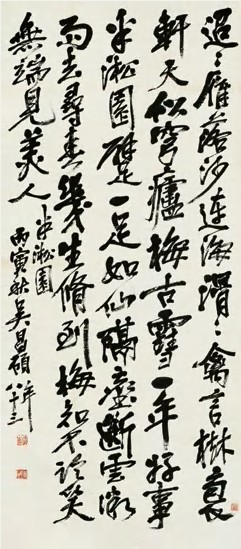 迢迢雁落沙连海渭渭禽言樹裹
軒天似穹廬梅古雪一年好事
半淞園躄一足如仙隔壺斷雲微
雨去尋春幾生脩到梅知不許笑
無端見美人半淞園
丙寅秋吴昌碩年八十三